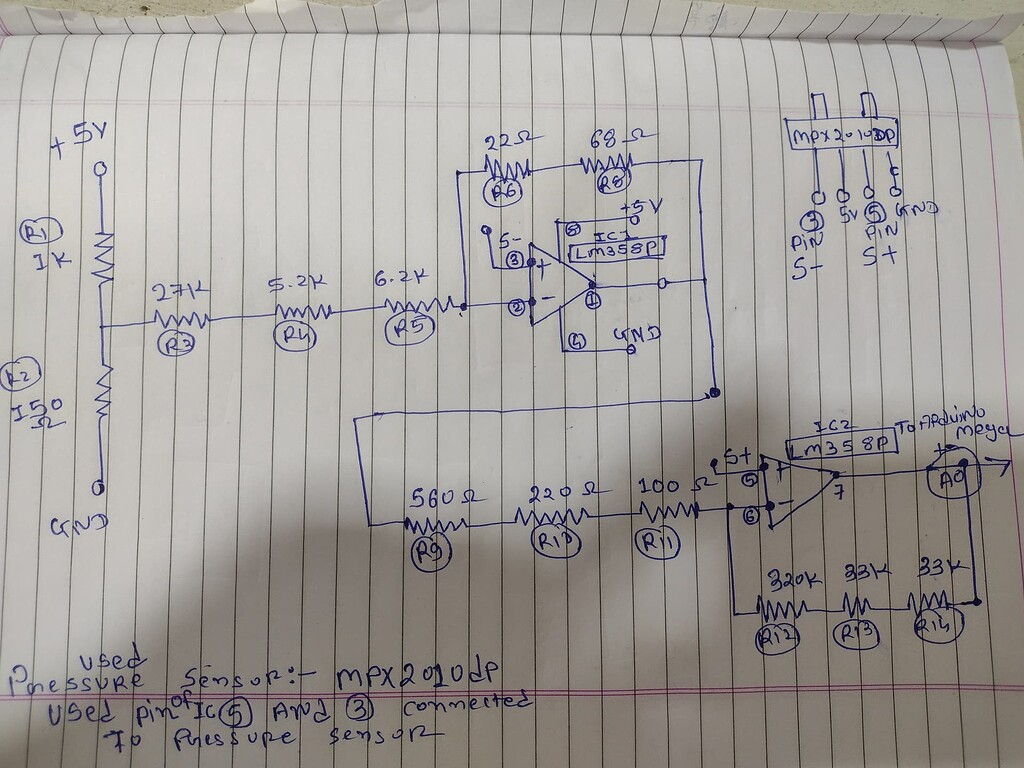 +5V
R1
1K
R2
150
Ω
GND
27K
R3
5.2K
R4
6.2K
R5
22Ω
R6
68Ω
R8
S-
3
+
2
-
8
+5V
IC1
LM358P
1
4
GND
MPX2010DP
3
Pin
S-
5V
5
Pin
S+
GND
560Ω
R9
220Ω
R10
100Ω
R11
S+
5
+
6
-
IC2
LM358P
7
To Arduino
Mega
A0
320K
R12
33K
R13
33K
R14
used
Pressure Sensor:- MPX2010dp
used pin of IC 5 And 3 connected
To Pressure sensor